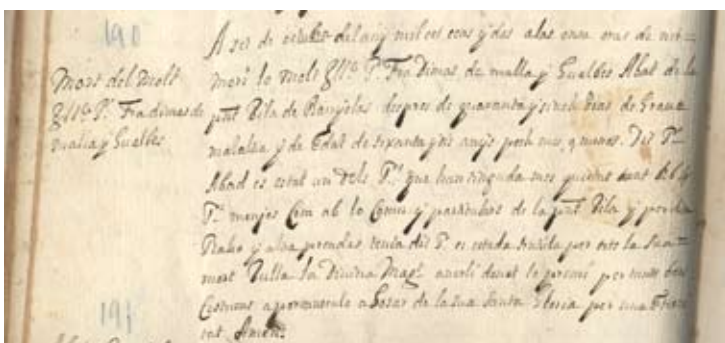 190
Mort del Molt
Ill.e P. Fra dimas de
malla y Gualbes
A set de octubre del any mil set cens y des a las onse oras de nit
mori lo molt Ill.e P. Fra Dimas de malla y Gualbes Abat de la
pnt Vila de Banyolas despres de quaranta y sinch dias de Grave
malaltia y de Edat de sexanta y anys poch mes, o manos. Dit P.
Abad es estat un dels P. que han tinguda mes quietut ab lo
P. monjos Com ab lo Comu y particulars de la pnt Vila y per
y prendas tenia dit P. es estada per tots la sua
mort Vulla la Divina Mag.t averli donat lo per molt
Comuns a Gosar de la sua Santa Gloria per una Eterni
tat Amen
191